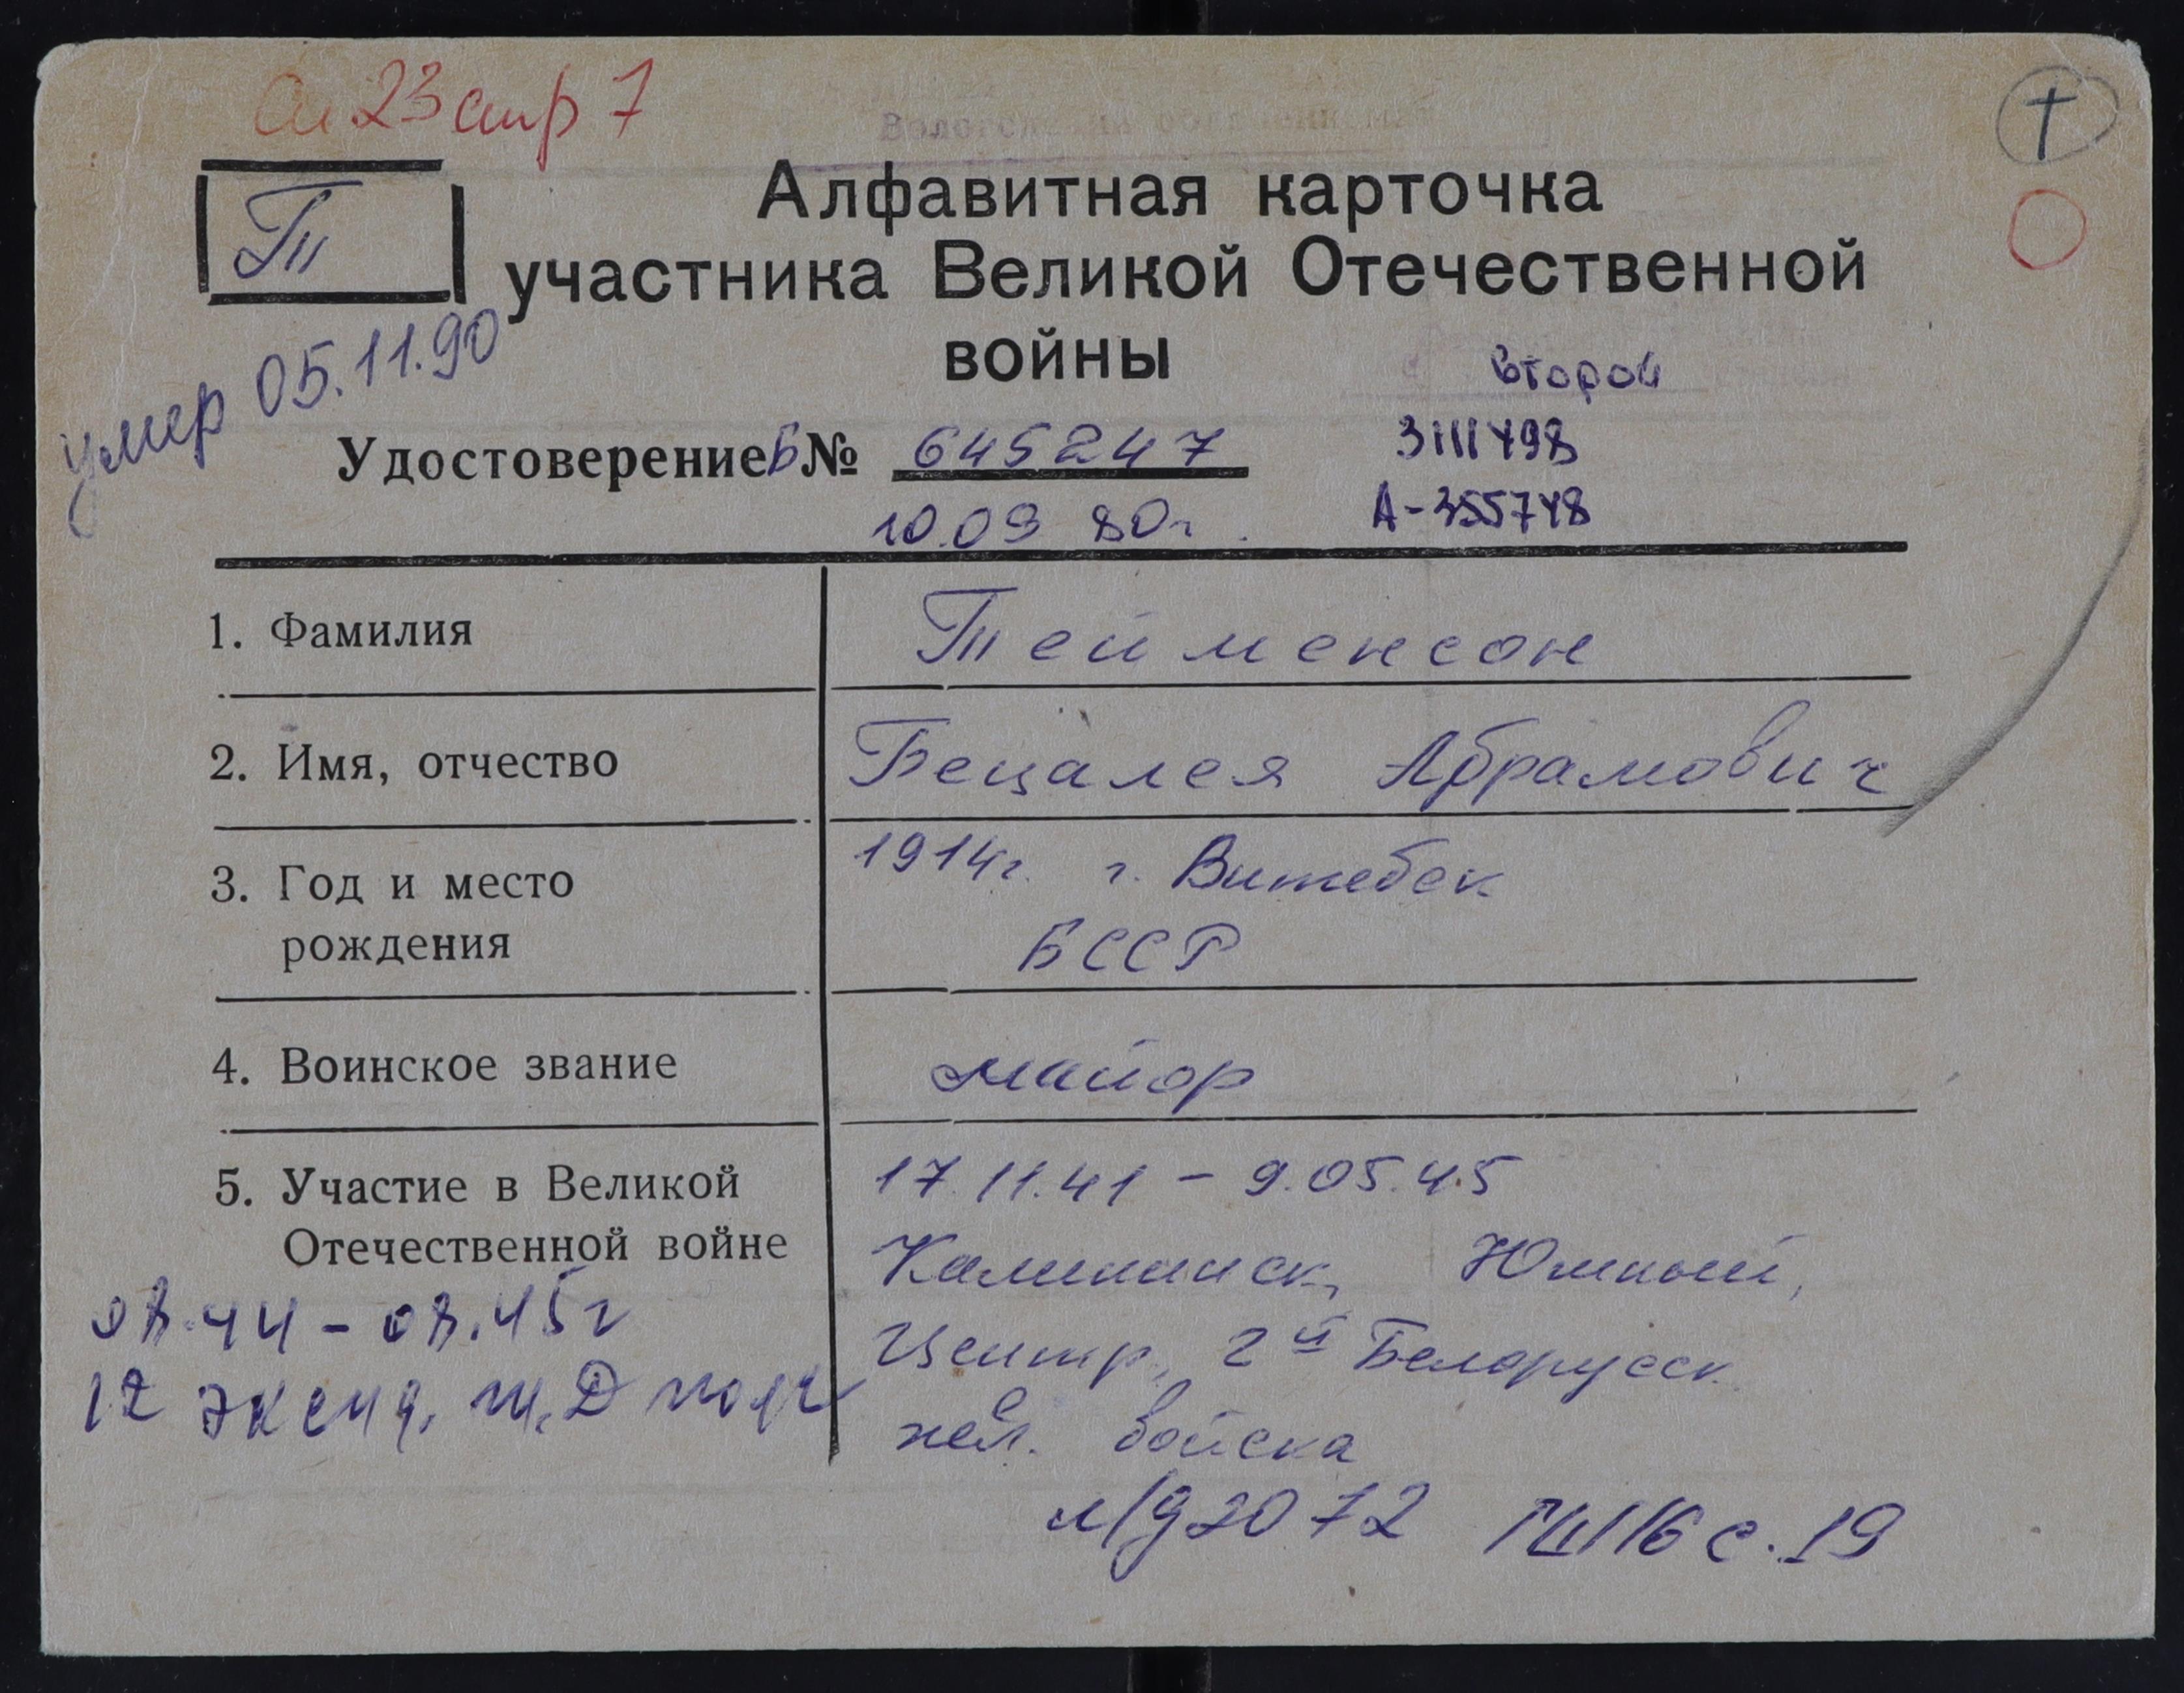 Ал 23 стр 7
Т
Алфавитная карточка
участника Великой Отечественной
войны
умер 05.11.90
второй
Удостоверение Б № 645247
3111498
10.09 80г.
А-355748
1. Фамилия Тейменсон
2. Имя, отчество Бецалея Абрамович
3. Год и место 1914г. г. Витебск
рождения БССР
4. Воинское звание майор
5. Участие в Великой 17.11.41 - 9.05.45
Отечественной войне Калининск, Южный,
08.44 - 08.45г
Центр, 2й Белорусск.
12 эксп. ж.д полк
жел. войска
л/д 2072 ГШ 116 с. 19